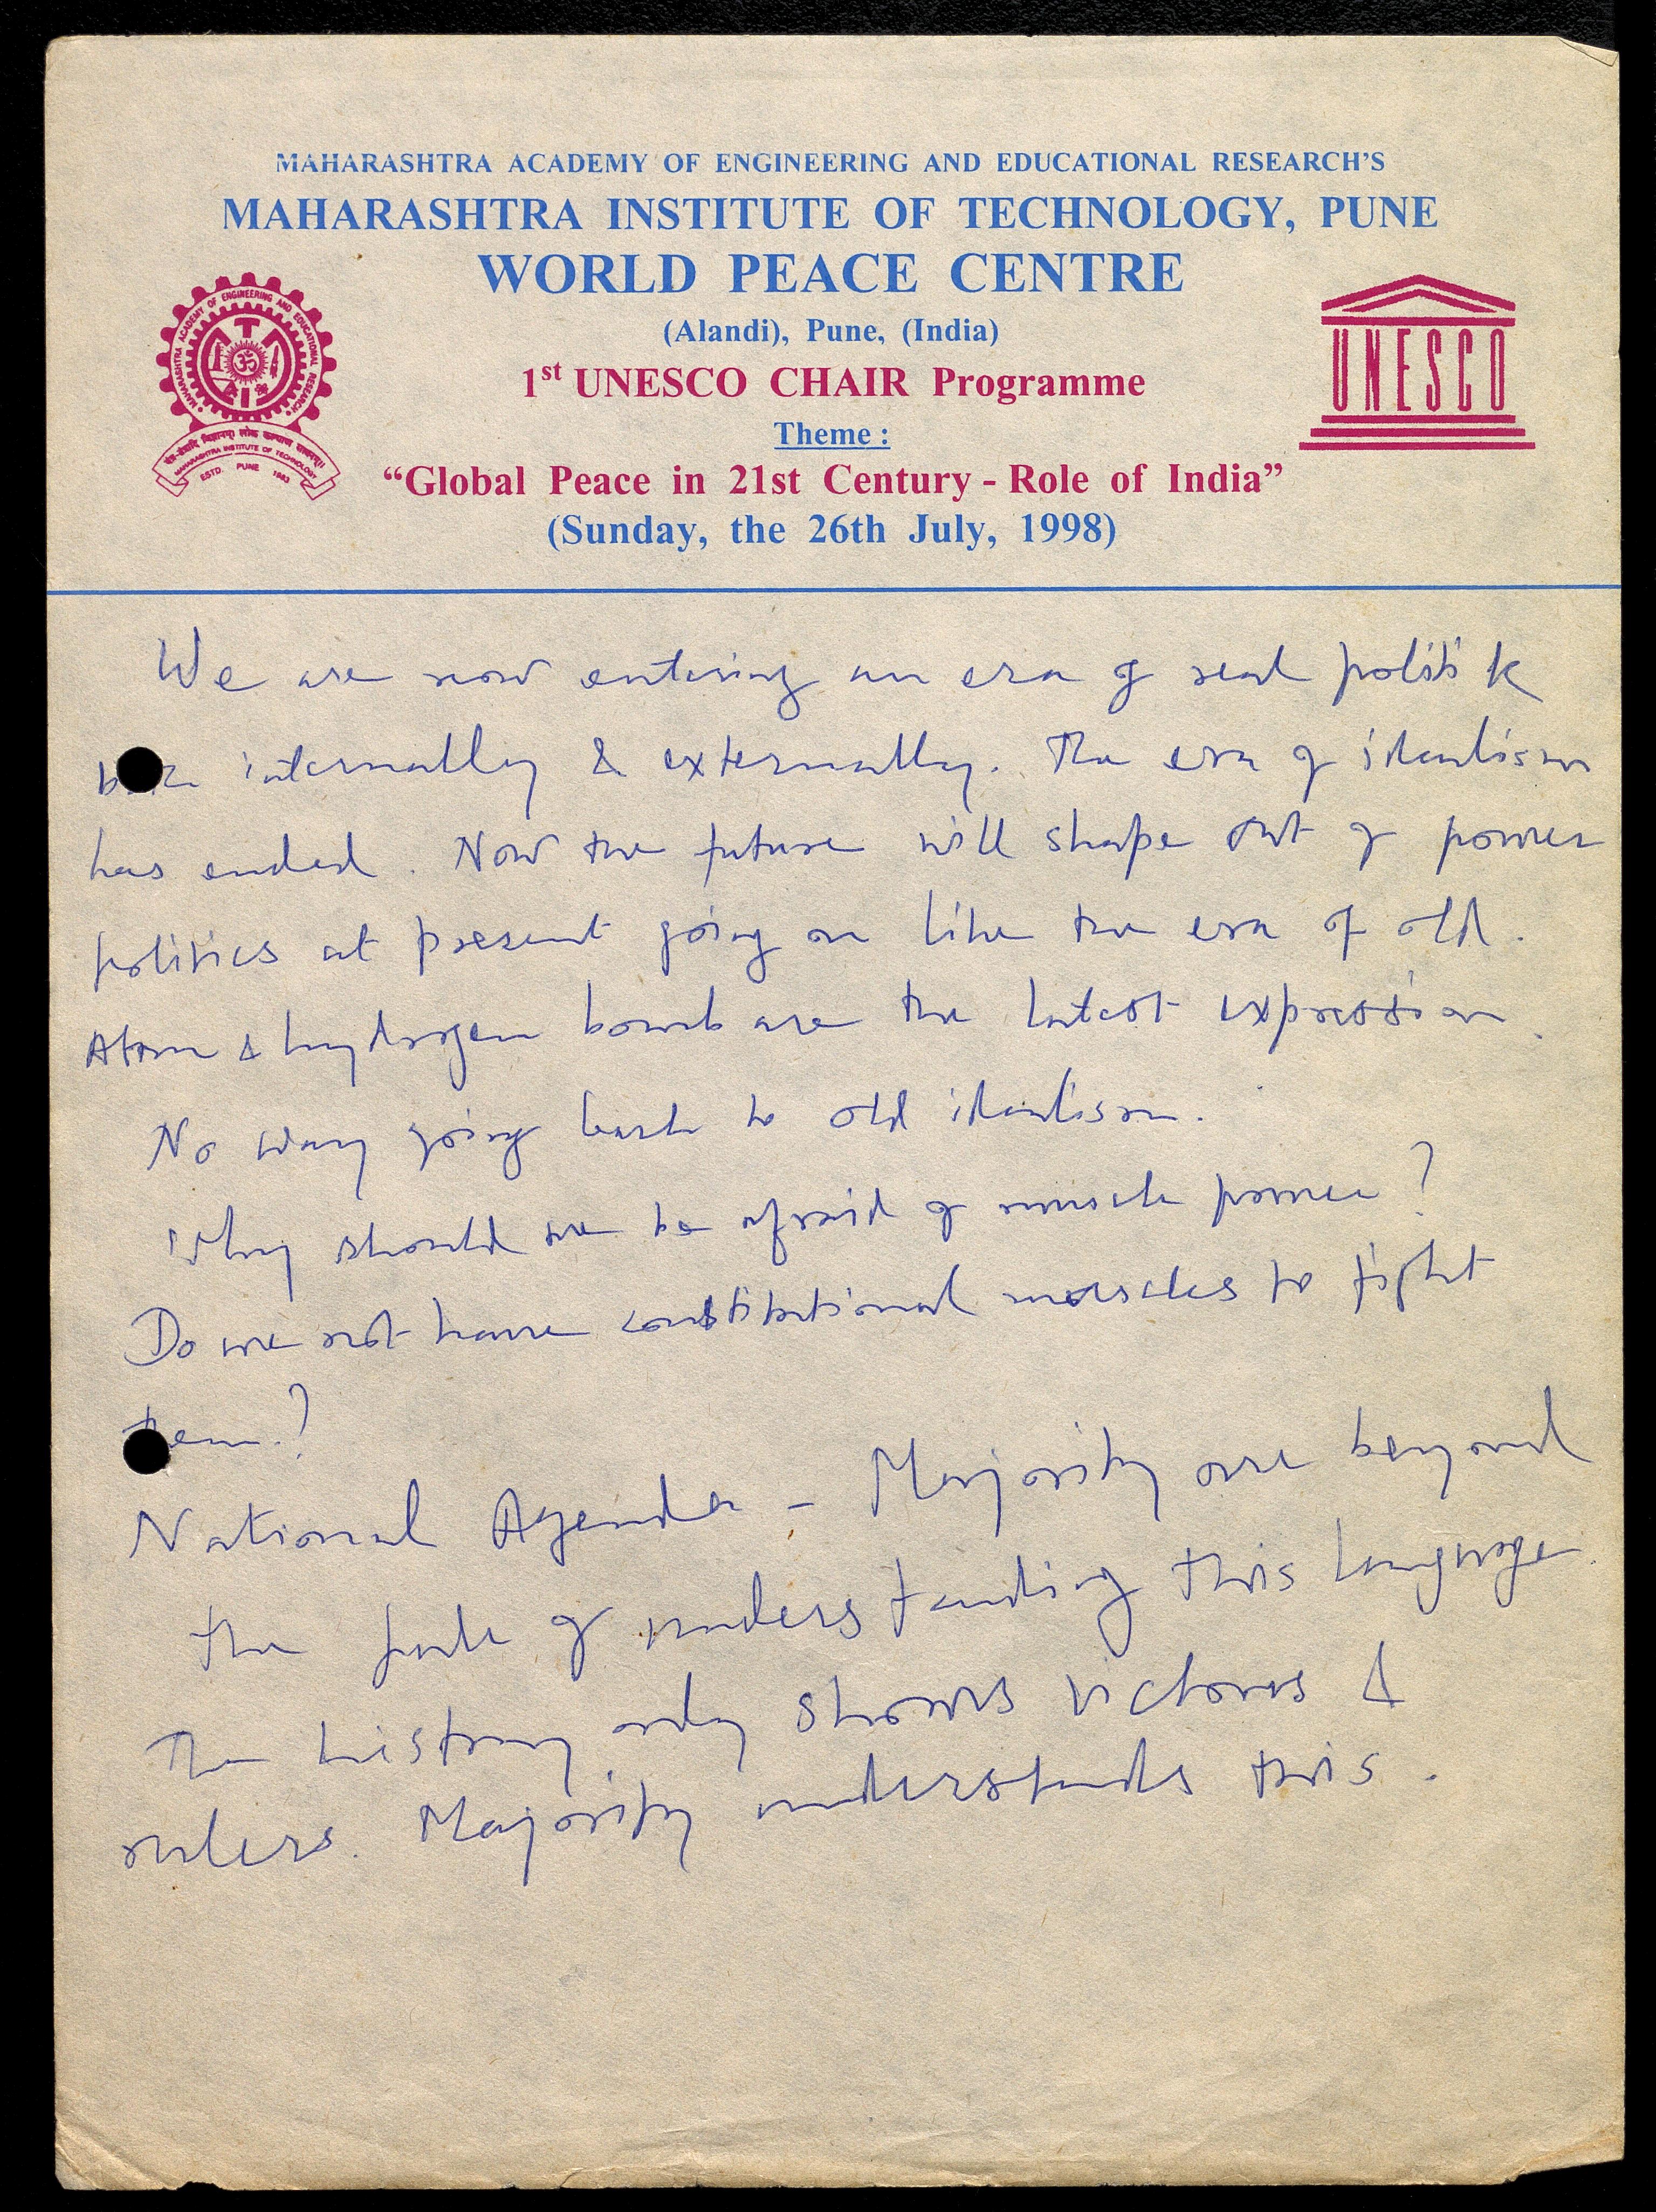 MAHARASHTRA ACADEMY OF ENGINEERING AND EDUCATIONAL RESEARCH'S
MAHARASHTRA INSTITUTE OF TECHNOLOGY, PUNE
WORLD PEACE CENTRE
(Alandi), Pune, (India)
1st UNESCO CHAIR Programme
Theme :
“Global Peace in 21st Century - Role of India”
(Sunday, the 26th July, 1998)
MAHARASHTRA ACADEMY OF ENGINEERING AND EDUCATIONAL RESEARCH
MAHARASHTRA INSTITUTE OF TECHNOLOGY
ESTD. PUNE 1983
UNESCO
We are now entering an era of real politik
both internally & externally. The era of idealism
has ended. Now the future will shape out of power
politics at present going on like the era of old.
Atom & hydrogen bomb are the latest expression.
No way going back to old idealism.
Why should we be afraid of muscle power?
Do we not have constitutional muscles to fight
them?
National Agenda - Majority are beyond
the pale of understanding this language.
The history only shows victories &
rulers. Majority understands this.